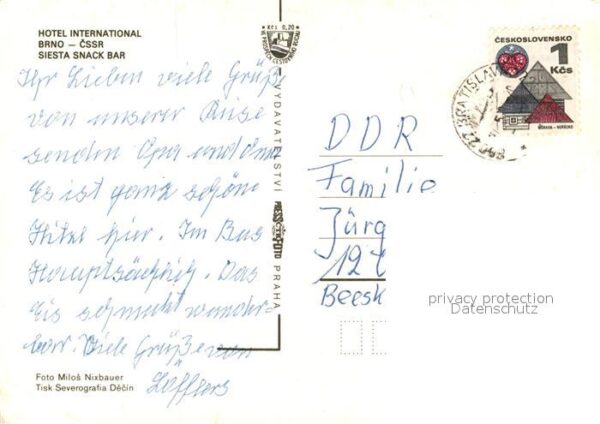 HOTEL INTERNATIONAL
BRNO – ČSSR
SIESTA SNACK BAR
Ihr Lieben viele Grüße
von unserer Reise
senden Opa und Oma
Es ist ganz schöne
Hitze hier. Im Bus
Hauptsächlich. Das
Eis schmeckt wunder-
bar. Viele Grüße von
Löfflers
Foto Miloš Nixbauer
Tisk Severografia Děčín
Kčs 0,20
VYDAVATELSTVÍ
PRESSFOTO
PRAHA
ČESKOSLOVENSKO
1
Kčs
BRATISLAVA
DDR
Familie
Jürg
Beesk
privacy protection
Datenschutz